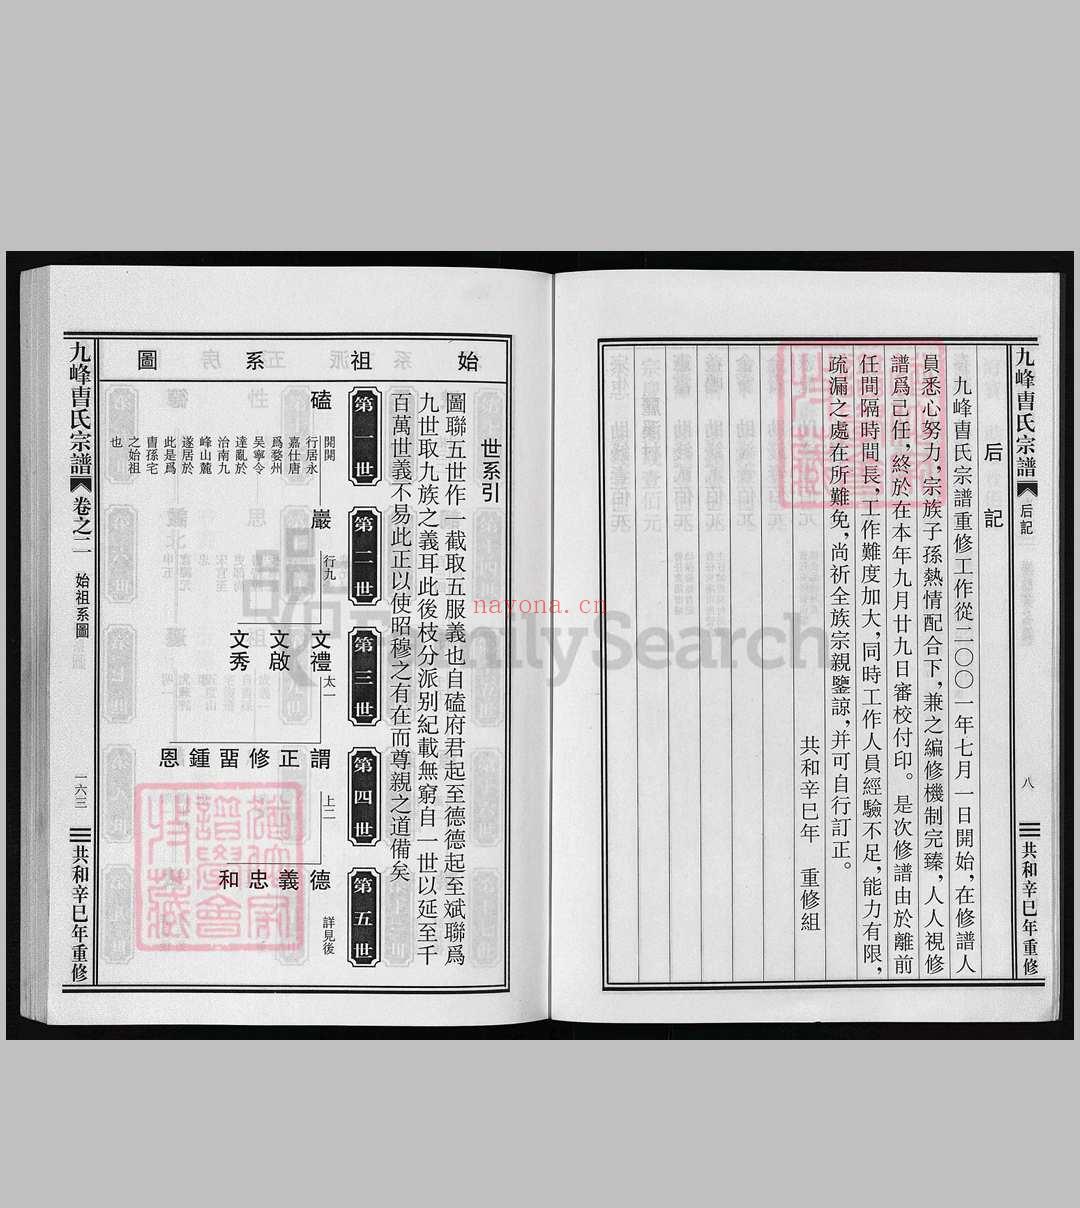 九峰曺氏宗譜
后記
八
共和辛巳年重修
后記
九峰曺氏宗譜重修工作從二〇〇一年七月一日開始，在修譜人
員悉心努力，宗族子孫熱情配合下，兼之編修機制完臻，人人視修
譜爲己任，終於在本年九月廿九日審校付印。是次修譜由於離前
任間隔時間長，工作難度加大，同時工作人員經驗不足，能力有限，
疏漏之處在所難免，尚祈全族宗親鑒諒，并可自行訂正。
共和辛巳年 重修組
始祖系圖
世系引
圖聯五世作一截取五服義也自磕府君起至德德起至斌聯爲
九世取九族之義耳此後枝分派别紀載無窮自一世以延至千
百萬世義不易此正以使昭穆之有在而尊親之道備矣
第一世
第二世
第三世
第四世
第五世
磕
開開
行居永
嘉仕唐
爲婺州
吴寧令
達亂於
治南九
峰山麓
遂居於
此是爲
曺孫宅
之始祖
也
巖
行九
文禮
太一
文啟
文秀
謂正修習鍾恩
上二
德義忠和
詳見後
九峰曺氏宗譜
卷之二
始祖系圖
一六三
共和辛巳年重修
FamilySearch
nayona.cn